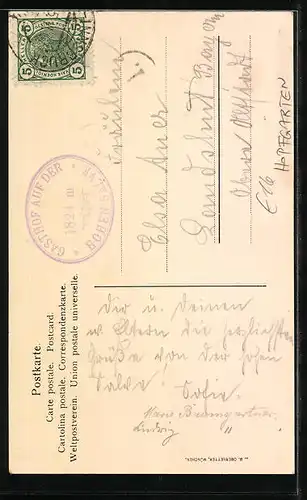 5 5
GASTHOF AUF DER HOHEN SALVE
1824 m
Postkarte.
Carte postale. Postcard.
Cartolina postale. Correspondenzkarte.
Weltpostverein. Union postale universelle.
Fräulein
Elsa Auer
Landshut Bayern
Obere Altstadt
E16 HOPFGARTEN
Dir u. Deinen
w. Eltern die herzlichsten
Grüße von der hohen
Salve! Sofie.
Marie Baumgartner.
Ludwig "
OBERLETTER, MÜNCHEN.